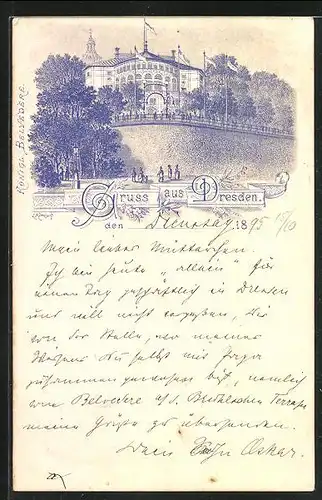 KÖNIGL. BELVEDERE.
Gruss aus Dresden.
den Dienstag 1895 15/10
Mein liebes Mütterchen.
Ich bin heute "allein" für
einen Tag geschäftlich in Dresden
und will nicht vergessen, Dir
von der Stelle, wo meines
Wissens Du selbst mit Papa
zusammen gewesen bist, nämlich
vom Belvedere a/d. Brühlschen Terrasse
meine Grüße zu übersenden.
Dein Oskar.